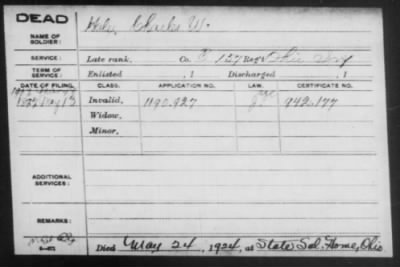 DEAD
NAME OF SOLDIER: Charles W.
SERVICE: Late rank, Co. E 127 Reg't Ohio Inf
TERM OF SERVICE: Enlisted , 1 Discharged , 1
DATE OF FILING. CLASS. APPLICATION NO. LAW. CERTIFICATE NO.
Invalid, 1190.927 942.177
Widow,
Minor,
ADDITIONAL SERVICES:
REMARKS:
Died May 24, 1924, at State Sol. Home, Ohio